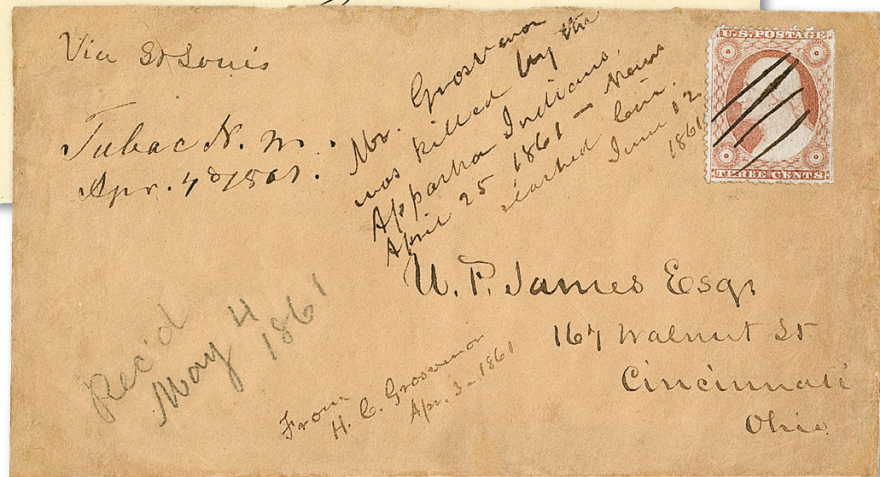 Via St Louis
Tubac N. M.
Apr. 4th 1861.
Mr. Grosvenor
was killed by the
Appacha Indians,
April 25 1861 — News
reached Cin.
June 12
1861
U.S. POSTAGE
THREE CENTS
U. P. James Esqr
167 Walnut St
Cincinnati
Ohio
Rec'd
May 4
1861
From
H. C. Grosvenor
Apr. 3 - 1861